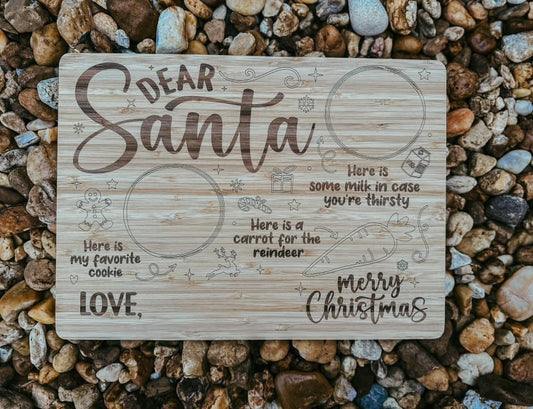 DEAR
Santa
Here is
some milk in case
you're thirsty
Here is a
carrot for the
reindeer
Here is
my favorite
cookie
LOVE,
merry
Christmas